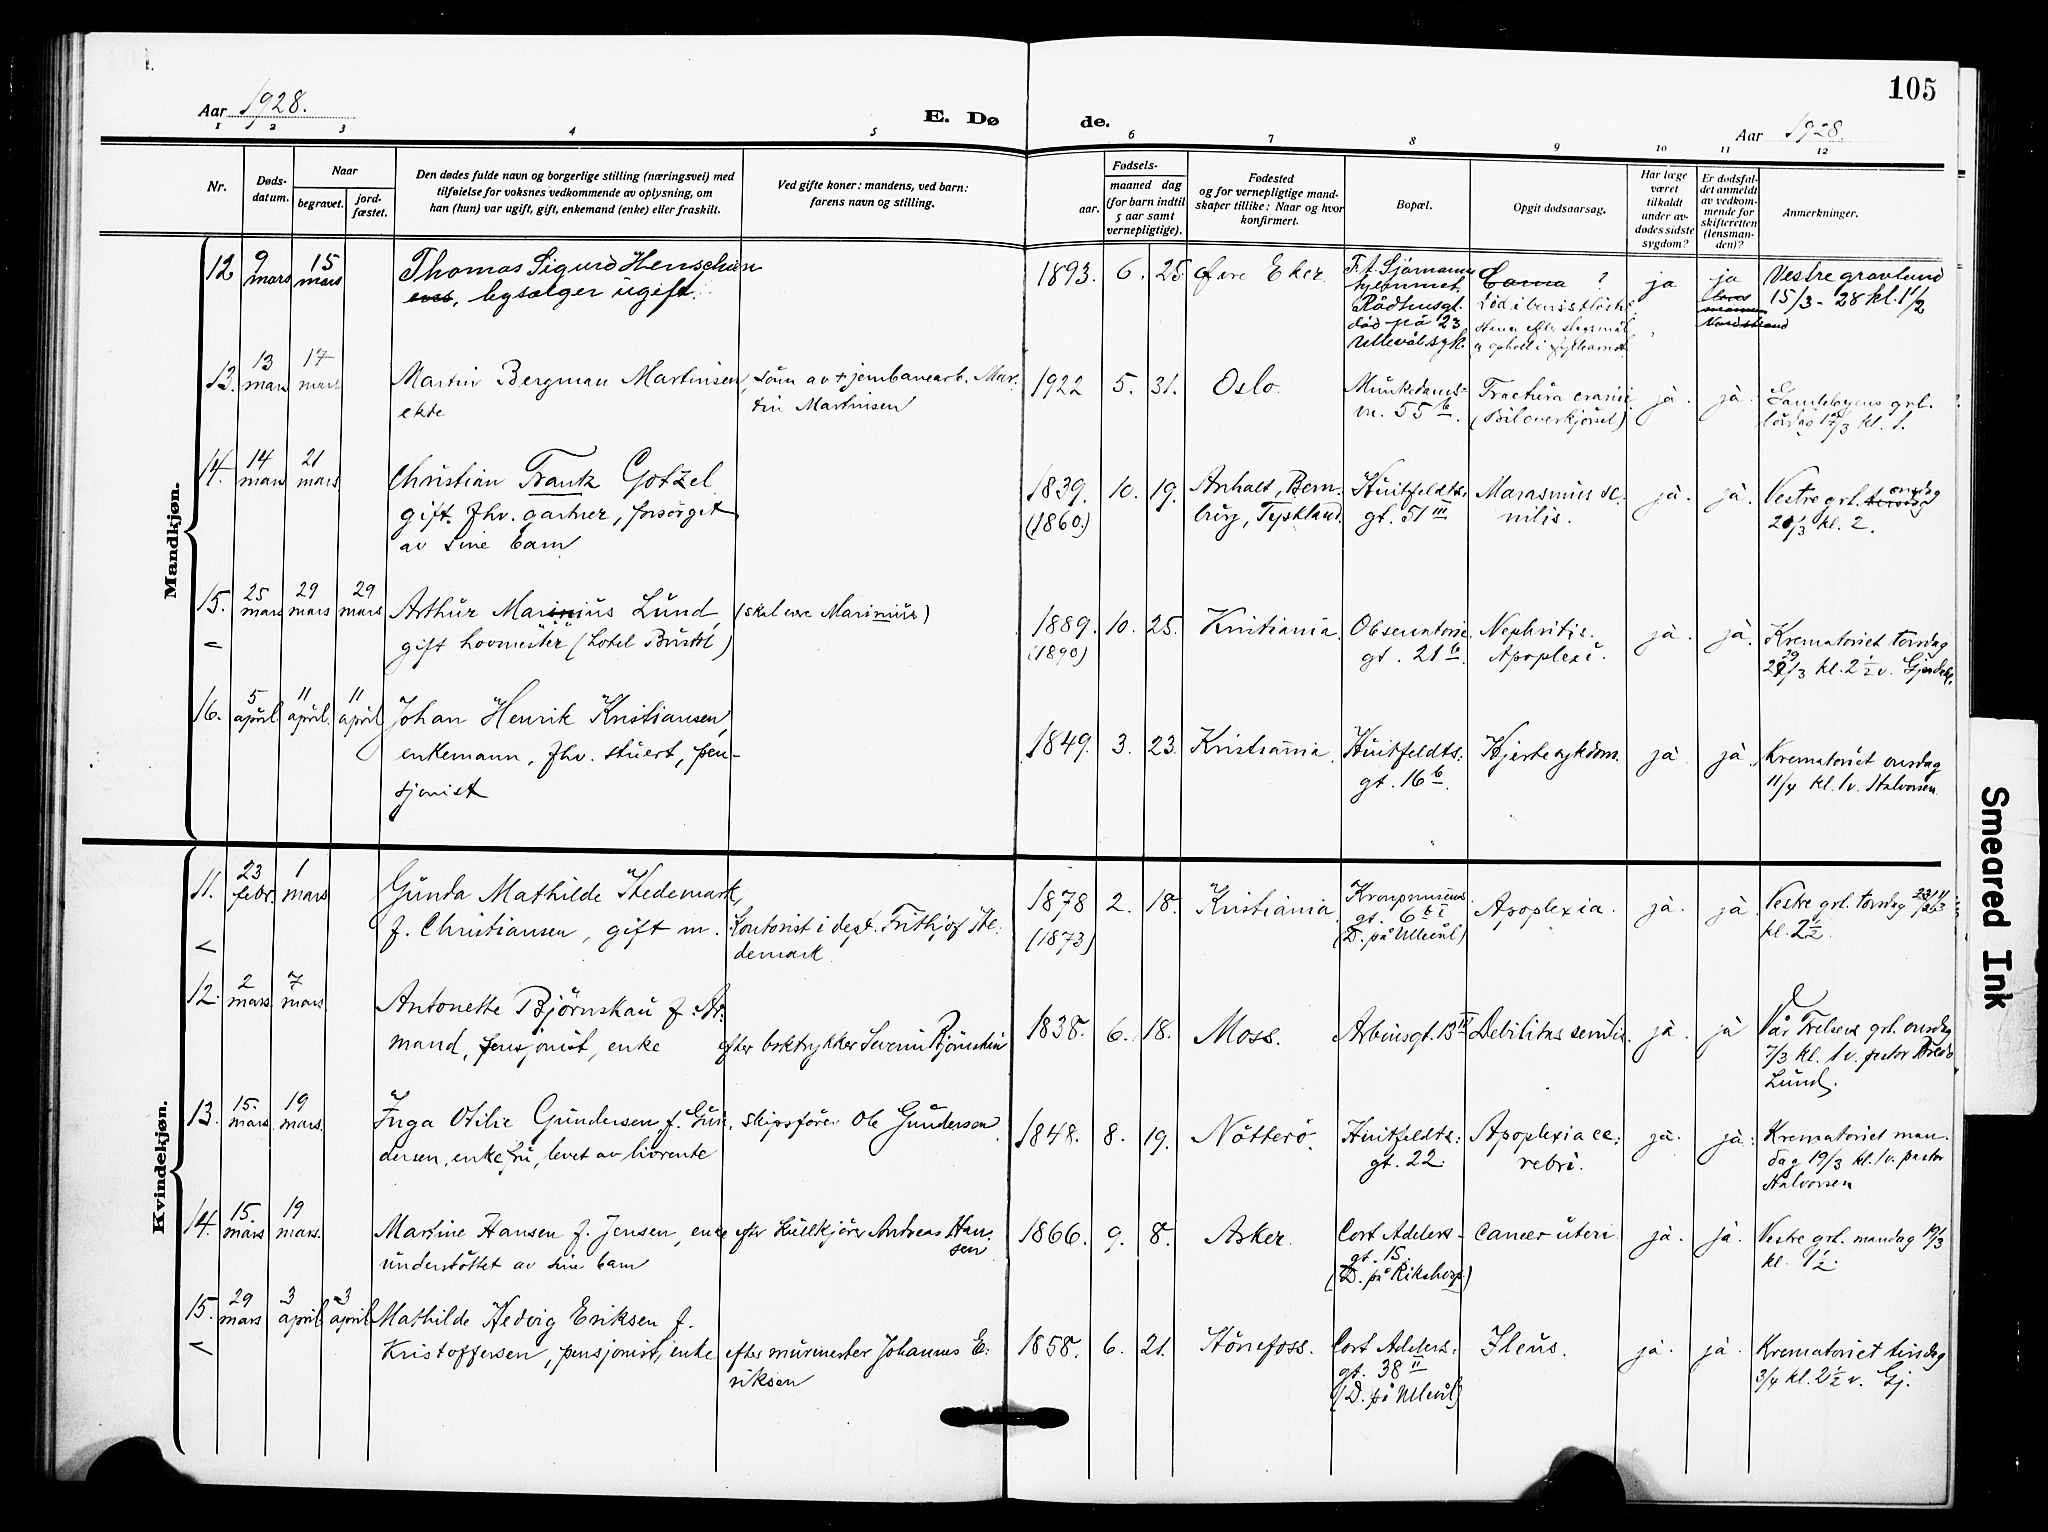 105
Aar 1928.
E. Dø
de.
Aar 1928.
1 2 3 4 5 6 7 8 9 10 11 12
Nr.
Døds-
datum.
Naar
begravet.
jord-
fæstet.
Den dødes fulde navn og borgerlige stilling (næringsvei) med
tilføielse for voksnes vedkommende av oplysning, om
han (hun) var ugift, gift, enkemand (enke) eller fraskilt.
Ved gifte koner: mandens, ved barn:
farens navn og stilling.
Fødsels-
aar.
maaned dag
(for barn indtil
5 aar samt
vernepligtige).
Fødested
og for vernepligtige mand-
skaper tillike: Naar og hvor
konfirmert.
Bopæl.
Opgit dødsaarsag.
Har læge
været
tilkaldt
under av-
dødes sidste
sygdom?
Er dødsfal-
det anmeldt
av vedkom-
mende for
skifteretten
(lensman-
den)?
Anmerkninger.
Mandkjøn.
12
9
mars
15
mars
Thomas Sigurd Henschien
bysælger ugift.
1893. 6. 25.
Øvre Eker
død på 23
Ullevål syk.
?
ja
ja
Vestre gravlund
15/3 - 28 kl. 1 1/2
13.
13
mars
17
mars
Martin Bergman Martinsen,
ekte
sönn av + jernbanearb. Mar-
tin Martinsen
1922 5. 31.
Oslo.
Munkedams-
vn. 55 b.
Fractura cranii
(Biloverkjørsel)
ja.
ja.
Gamlebyens grl.
lördag 17/3 kl. 1.
14.
14
mars
21
mars
Christian Frantz Gotzel
gift. fhv. gartner, forsörget
av sine barn
1839. 10. 19.
(1860)
Anhalt, Bern-
burg, Tyskland.
Huitfeldts-
gt. 51 III
Marasmus se-
nilis.
ja.
ja.
Vestre grl. onsdag
21/3 kl. 2.
15.
25
mars
29
mars
29
mars
Arthur Marinius Lund,
gift hovmester (Hotel Bristol)
(skal være Marinius)
1889. 10. 25.
(1890)
Kristiania.
Observatorie
gt. 21 b.
Nephritis.
Apoplexi.
ja.
ja.
Krematoriet torsdag
29/3 kl. 2 1/2 v. Gjerdal.
16.
5
april
11
april.
11
april
Johan Henrik Kristiansen,
enkemann, fhv. stuert, pen-
sjonist
1849. 3. 23.
Kristiania.
Huitfeldts-
gt. 16 b.
Hjertesykdom.
ja
ja.
Krematoriet onsdag
11/4 kl. 1 v. Halvorsen.
Kvindekjøn.
11.
23
febr.
1
mars
Gunda Mathilde Hedemark,
f. Christiansen, gift m.
Kontorist i dept. Frithjof He-
demark
1878 2. 18.
(1873)
Kristiania
gt. 6 b I
(D. på Ullevål)
Apoplexia.
ja.
ja.
Vestre grl. torsdag 1/3
kl. 2 1/2.
12.
2
mars.
7
mars.
Antonette Björnskau f. Ar-
mand, pensjonist, enke
efter boktrykker Severin Björnskau
1838. 6. 18.
Moss.
Arbinsgt. 13 IV
Debilitas senilis.
ja.
ja
Vår Frelsers grl. onsdag
7/3 kl. 1 v. pastor Bredo
Lund.
13.
15.
mars.
19
mars.
Inga Otilie Gundersen f. Gun-
dersen, enkefru, levet av livrente
skipsfører Ole Gundersen
1848. 8. 19.
Nötterö.
Huitfeldts-
gt. 22.
Apoplexia ce-
rebri.
ja.
ja.
Krematoriet man-
dag 19/3 kl. 1 v. pastor
Halvorsen
14.
15
mars
19
mars.
Martine Hansen f. Jensen, enke
understöttet av sine barn
efter kullkjörer Andreas Han-
sen
1866. 9. 8.
Asker.
Cort Adelers-
gt. 15.
(D. på Rikshosp.)
Cancer uteri
ja.
ja.
Vestre grl. mandag 19/3
kl. 1 1/2.
15.
29
mars
3
april
3
april
Mathilde Hedvig Eriksen f.
Kristoffersen, pensjonist, enke
efter murmester Johannes E-
riksen
1858. 6. 21.
Hönefoss.
Cort Adelers-
gt. 38 II
(D. på Ullevål)
Ileus.
ja.
ja.
Krematoriet tirsdag
3/4 kl. 2 1/2 v. Gj.
Smeared Ink